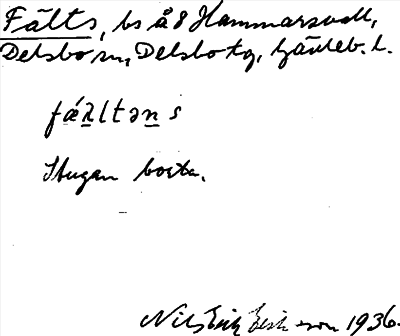 Fälts, bs å 8 Hammarsvall,
Delsbo sn, Delsbo tg, Gävleb. l.
fǽltəns
Stugan borta.
Nils Erik Eriksson 1936.